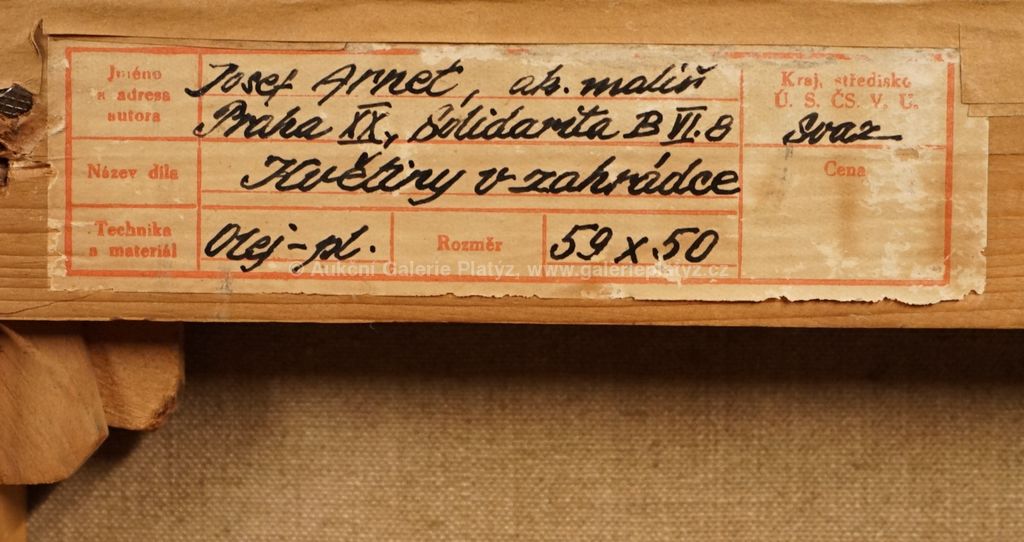 Jméno a adresa autora
Josef Arnet, ak. malíř
Praha XX, Solidarita B VI.8
Kraj, středisko
Ú. S. ČS. V. U.
Svaz
Název díla
Květiny v zahrádce
Cena
Technika a materiál
Olej-pl.
Rozměr
59 x 50
© Aukční Galerie Platýz, www.galerieplatyz.cz